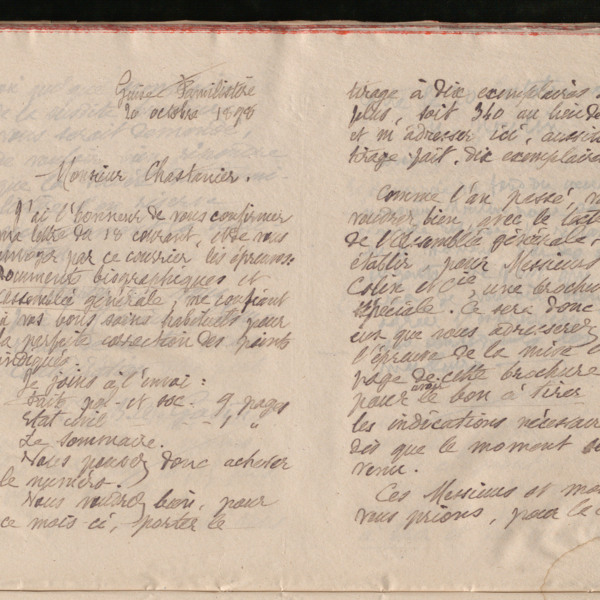 Guise Familistère
20 octobre 1898
Monsieur Chastanier.
J'ai l'honneur de vous confirmer
ma lettre du 18 courant, et de vous
envoyer par ce courrier les épreuves
Documents biographiques et
Assemblée générale, me confiant
à vos bons soins habituels pour
la parfaite correction des points
indiqués.
Je joins à l'envoi :
Faits pol. et soc. 9 pages
Etat civil 1 "
Le sommaire.
Vous pouvez donc achever
le numéro.
Vous voudrez bien, pour
ce mois-ci, porter le
tirage à dix exemplaires
plus, soit 340 au lieu de
et m'adresser ici, aussitôt
tirage fait, dix exemplaires
Comme l'an passé,
voudrez bien, avec le texte
de l'Assemblée générale,
établir pour Messieurs
Colin et Cie, une brochure
spéciale. Ce sera donc
eux que vous adresserez
l'épreuve de la mise en
page de cette brochure
pour avoir le bon à tirer
les indications nécessaires
dès que le moment
venu.
Ces Messieurs et moi
vous prions, pour la